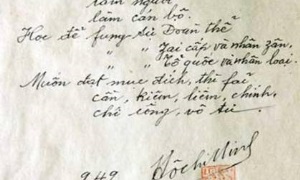 làm người,
làm cán bộ.
Học để fụng sự Đoàn thể
" " Zai cấp và nhân zân,
" " Tổ quốc và nhân loại.
Muốn đạt mục đích, thì fải
cần, kiệm, liêm, chính,
chí công, vô tư
949
Hồ Chí Minh